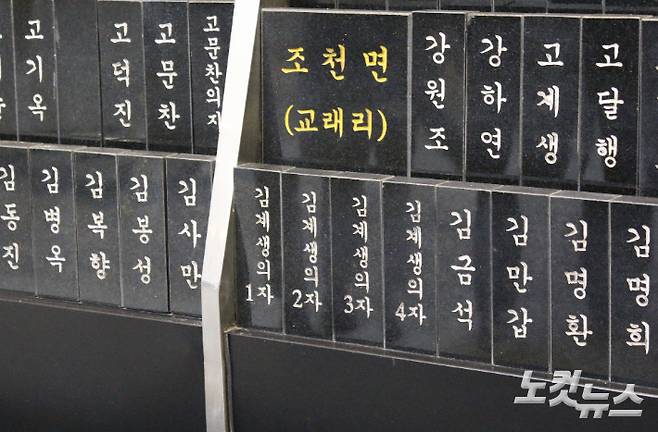 고기옥
고덕진
고문찬
고문찬의자
김동진
김병옥
김복향
김봉성
김사만
조천면
(교래리)
강원조
강하연
고계생
고달행
김계생의1자
김계생의2자
김계생의3자
김계생의4자
김금석
김만갑
김명환
김명희
노컷뉴스